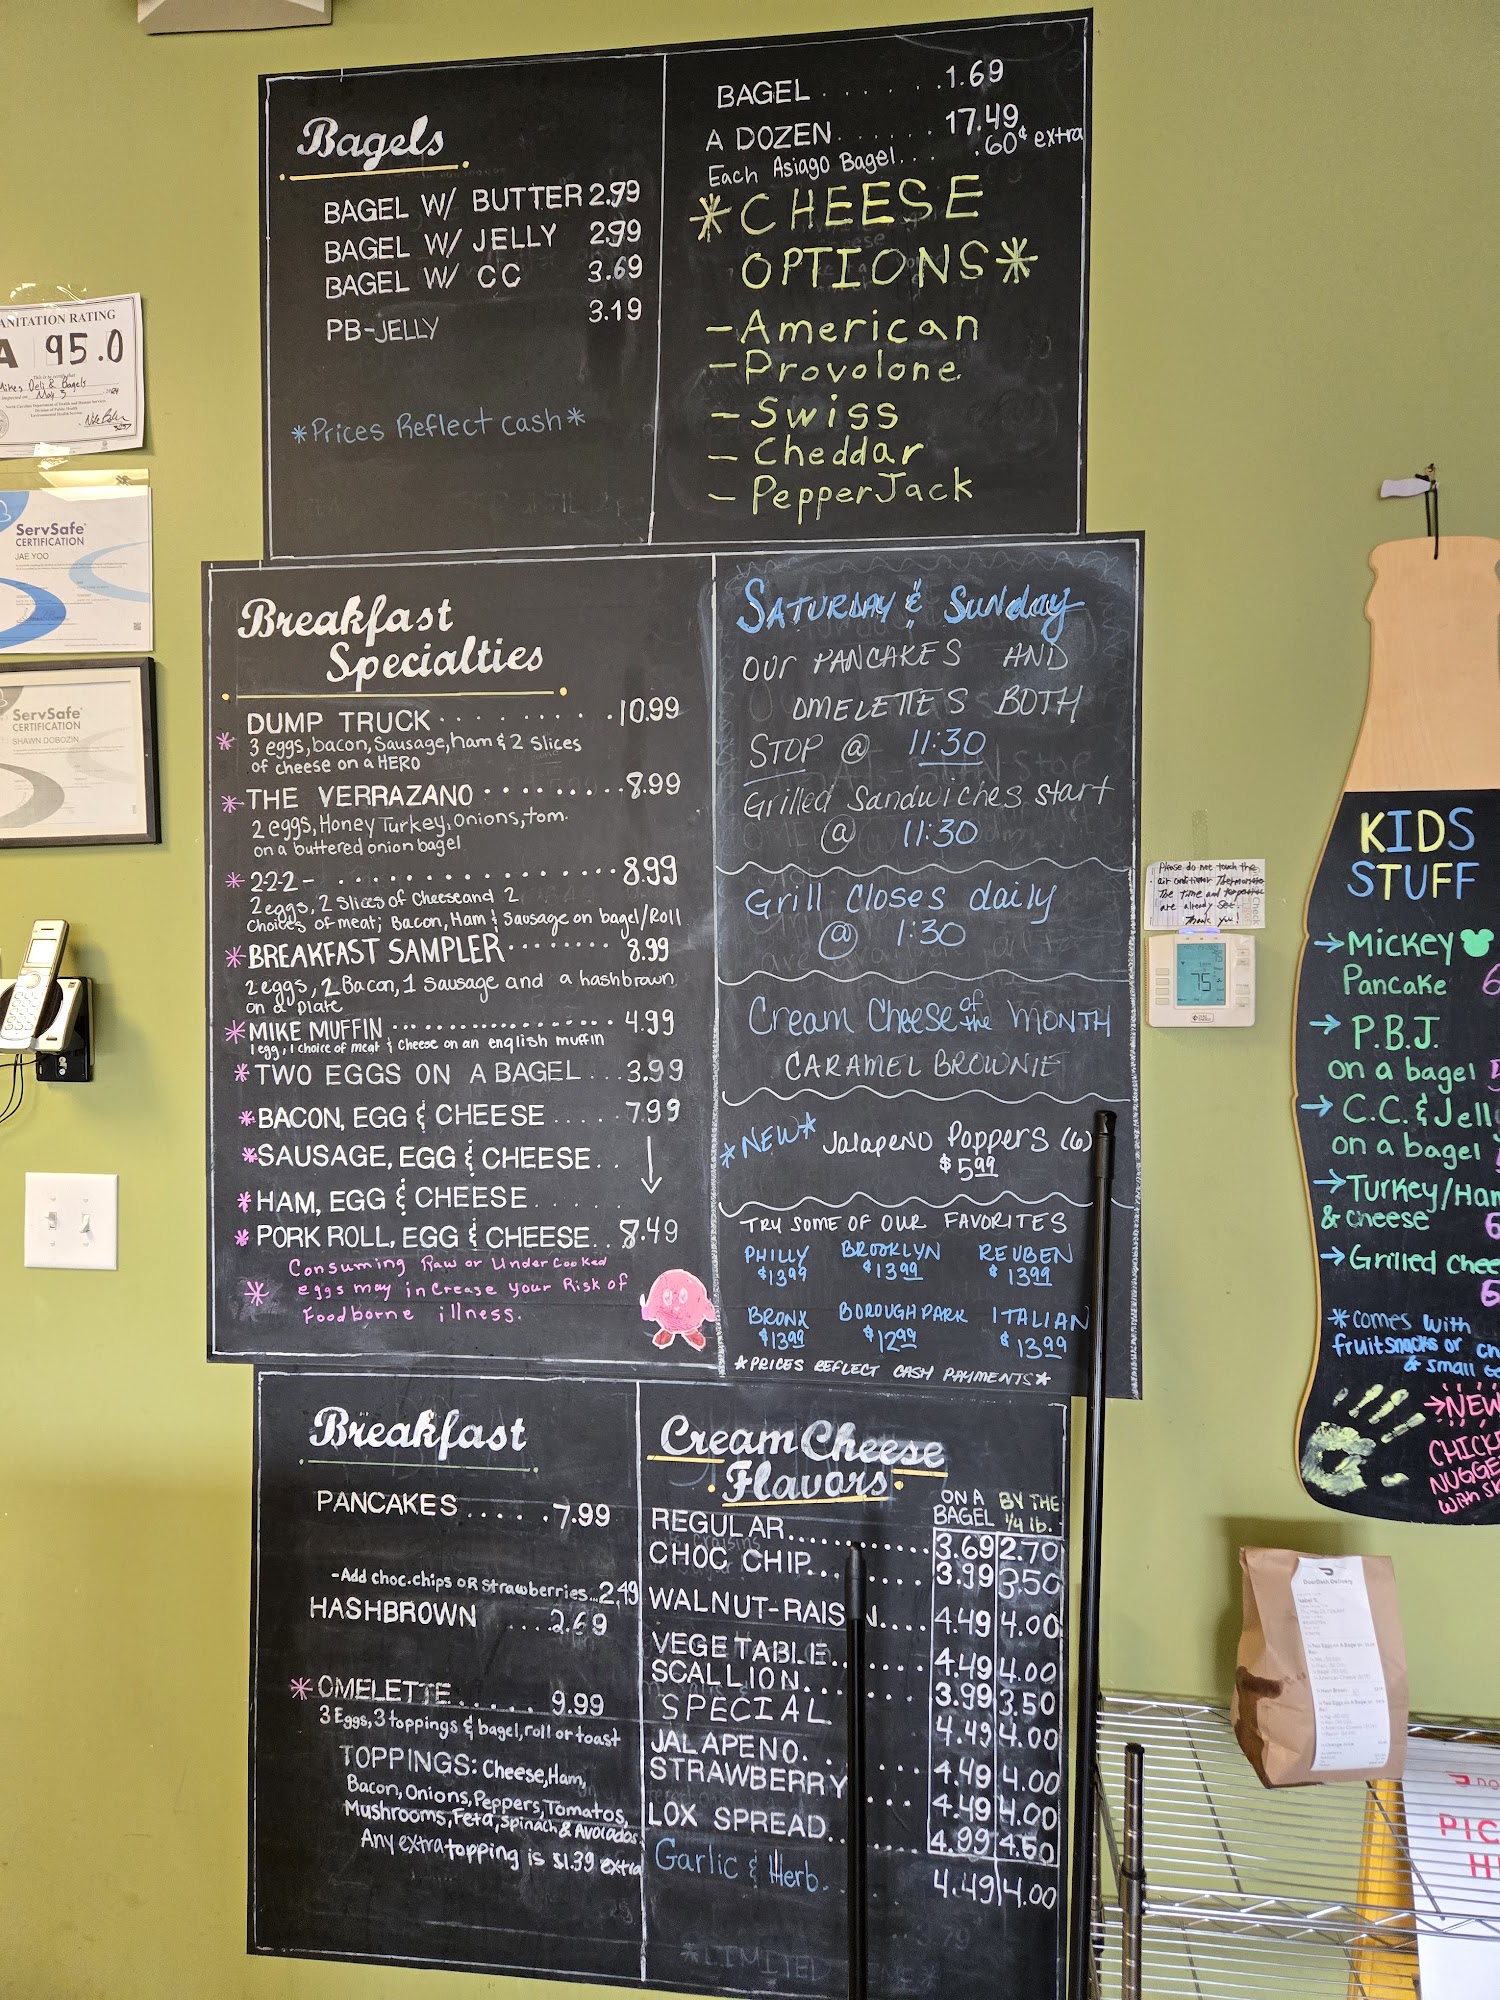 Bagels
BAGEL W/ BUTTER 2.99
BAGEL W/ JELLY 2.99
BAGEL W/ CC 3.69
PB-JELLY 3.19
*Prices Reflect cash*
BAGEL . . . . . . . 1.69
A DOZEN. . . . . . 17.49
Each Asiago Bagel. . . .60¢ extra
*CHEESE
OPTIONS*
- American
- Provolone
- Swiss
- Cheddar
- PepperJack
ANITATION RATING
A 95.0
Mikes Deli & Bagels
May 3
ServSafe
CERTIFICATION
JAE YOO
ServSafe
CERTIFICATION
SHAWN DOBOZIN
Breakfast
Specialties
DUMP TRUCK . . . . . . . . . 10.99
* 3 eggs, bacon, Sausage, ham & 2 slices
of cheese on a HERO
* THE VERRAZANO . . . . . . . . 8.99
2 eggs, Honey Turkey, Onions, tom.
on a buttered onion bagel
* 2-2-2 - . . . . . . . . . . . . . . . 8.99
2 eggs, 2 slices of Cheese and 2
Choices of meat; Bacon, Ham & Sausage on bagel/Roll
* BREAKFAST SAMPLER . . . . . . . . 8.99
2 eggs, 2 Bacon, 1 Sausage and a hashbrown
on a plate
* MIKE MUFFIN . . . . . . . . . . . . . . . 4.99
1 egg, 1 choice of meat & cheese on an english muffin
* TWO EGGS ON A BAGEL . . . 3.99
* BACON, EGG & CHEESE . . . . 7.99
* SAUSAGE, EGG & CHEESE. .
* HAM, EGG & CHEESE . . . . .
* PORK ROLL, EGG & CHEESE. . 8.49
Consuming Raw or UnderCooked
* eggs may inCrease your Risk of
Foodborne illness.
SATURDAY & Sunday
OUr PANCAKES AND
OMELETTES BOTH
STOP @ 11:30
Grilled Sandwiches start
@ 11:30
Grill Closes daily
@ 1:30
Cream Cheese of the MONTH
CARAMEL BROWNIE
*NEW* Jalapeno Poppers (6)
$5.99
TRY SOME OF OUR FAVORITES
PHILLY BROOKLYN REUBEN
$13.99 $13.99 $13.99
BRONX BOROUGH PARK ITALIAN
$13.99 $12.99 $13.99
*PRICES REFLECT CASH PAYMENTS*
Breakfast
PANCAKES . . . . . 7.99
-Add choc.chips OR Strawberries...2.49
HASHBROWN . . . . 2.69
* OMELETTE . . . . . 9.99
3 Eggs, 3 toppings & bagel, roll or toast
TOPPINGS: Cheese, Ham,
Bacon, Onions, Peppers, Tomatos,
Mushrooms, Feta, Spinach & Avocados
Any extra topping is $1.39 extra
Cream Cheese
Flavors
ON A BAGEL BY THE 1/4 lb.
REGULAR . . . . . . . 3.69 2.70
CHOC CHIP . . . . . . 3.99 3.50
WALNUT-RAISIN . . . . 4.49 4.00
VEGETABLE . . . . . . 4.49 4.00
SCALLION . . . . . . 3.99 3.50
SPECIAL 4.49 4.00
JALAPENO. . . . . . 4.49 4.00
STRAWBERRY . . . 4.49 4.00
LOX SPREAD. . . . . 4.99 4.50
Garlic & Herb. . . . 4.49 4.00
*LIMITED
Please do not touch the
air conditioner
The time and
are already Set.
Thank you!
75
KIDS
STUFF
→ Mickey
Pancake
→ P.B.J.
on a bagel
→ C.C. & Jell
on a bagel
→ Turkey/Ham
& cheese
→ Grilled chee
* comes with
fruit snacks or
& small
→ NEW
CHICK
NUGGE
with
DoorDash Delivery
PIC